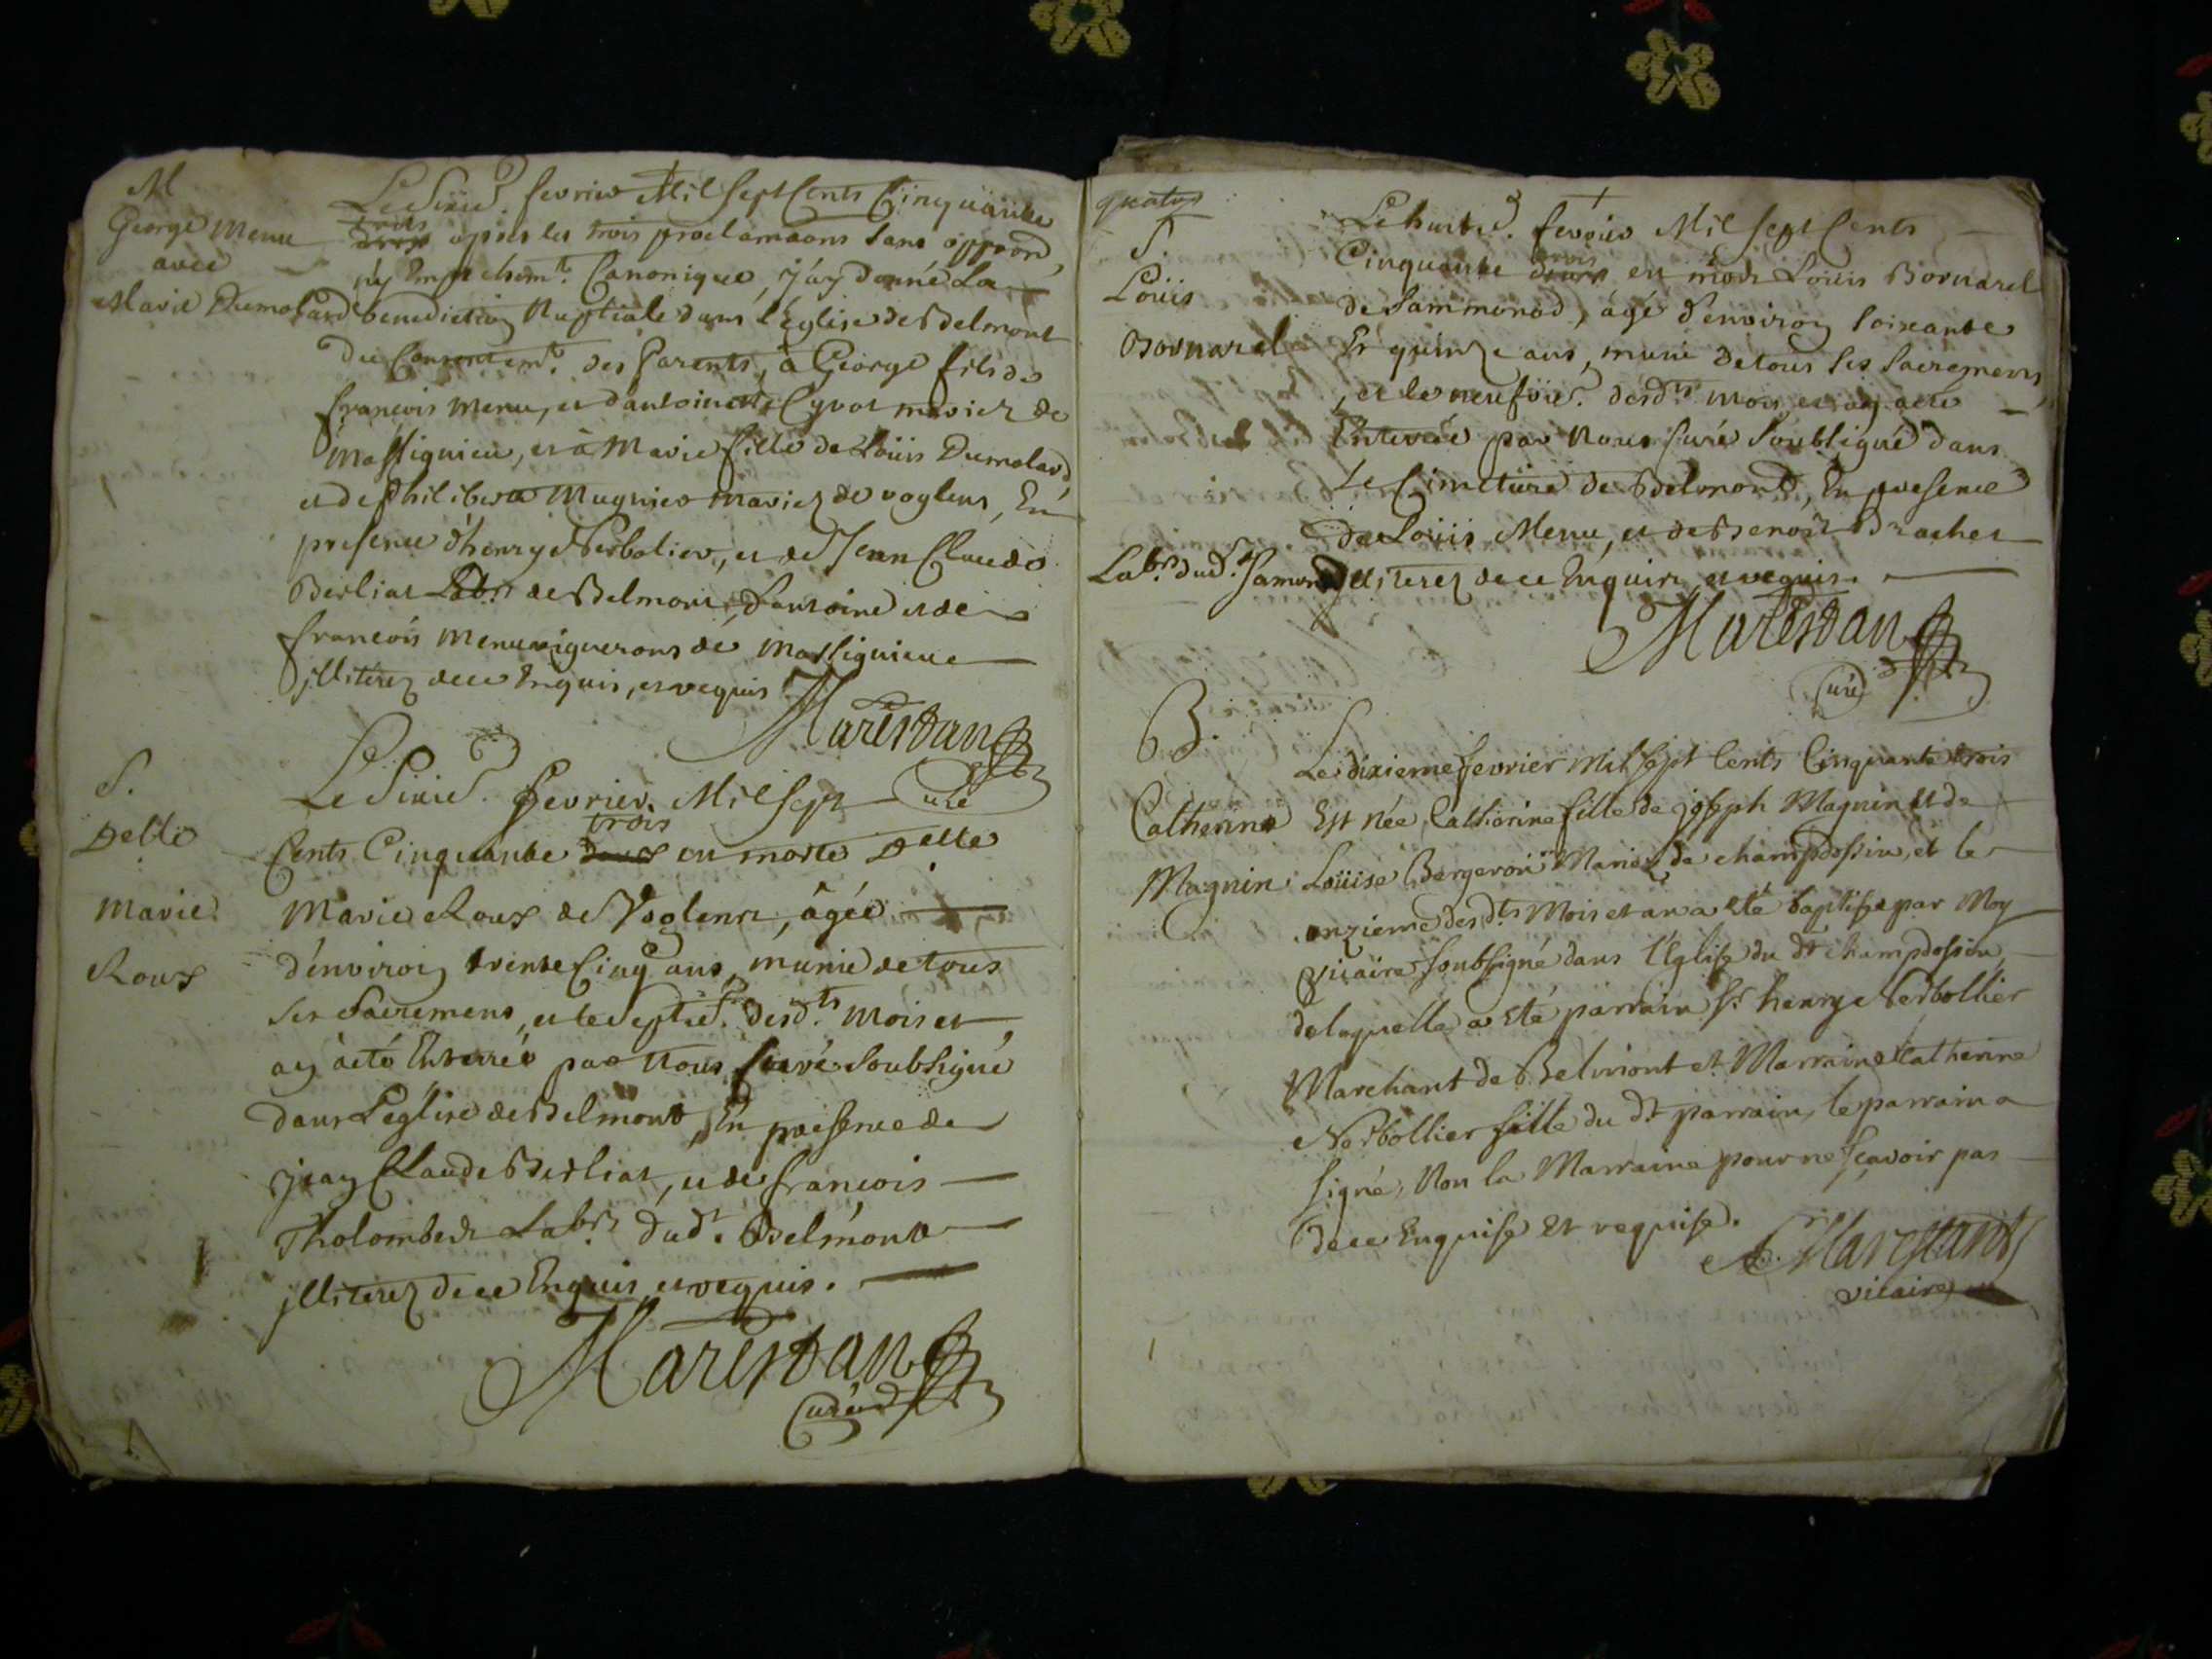 M
George Menu
avec
Marie Dumolard
Le Sixie. fevrier Mil Sept Cents Cinquante
trois
deux apres les trois proclamaons Sans oppoon,
ny Empechemt. Canonique, j'ay donné La
benediction Nuptiale dans L'Eglise de Belmont
du Consentemt. des Parents, à George fils de
françois menu, et d'antoinette Cyvot mariez de
Massignieu, et à Marie fille de Loüis Dumolard,
et de Philiberte Mugnier mariez de voglens, En
presence d'henry Nerbolier, et de Jean Claude
Berliat Labrs de Belmont, d'antoine et de
françois Menu vignerons de Massignieu
illiterez de ce Enquis, et requis
Marestan
Curé
S.
Delle
Marie
Roux
Le Sixie. fevrier Mil Sept
trois
Cents Cinquante deux est morte Delle
Marie Roux de Voglens, âgée
d'environ trente Cinq ans, munie de tous
ses Sacremens, et le Septie. desdts. mois et
an àeté Enterrée par Nous Curé Soubsigné
dans L'eglise de Belmont, En presence de
Jean Claude Berliat, et de françois
Tholombert Labrs. dud. Belmont
illiterez de ce Enquis et requis.
Marestan
Curé
quatre
S.
Loüis
Bornarel
Le huitie. fevrier Mil Sept Cents
trois
Cinquante deux est mort Loüis Bornarel
de Sammonod, âgé d'environ Soixante
Et quinze ans, muni de tous Ses Sacremens,
et le neufvie. desdts. mois et an àeté
Enterré par Nous Curé Soubsigné dans
Le Cimetiere de Belmont, En presence
de Loüis Menu, et de Benoît Brachet
Labrs. dudt. Samonod illiterez de ce Enquis, et requis.
Marestan
Curé
B.
Catherine
Magnin
Le dixieme fevrier Mil Sept Cents Cinquante trois
Est née Catherine fille de joseph Magnin Et de
Loüise Bergeron Mariez de champdossin, et le
onzieme des dts Mois et an a eté baptisée par Moy
vicaire soubsigné dans l'Eglise du dt champdossin,
de laquelle a eté parrain Sr. henry Nerbollier
Marchant de Belmont et Marraine Catherine
Nerbollier fille du dt parrain, le parrain a
signé, Non la Marraine pour ne sçavoir pas
de ce Enquise Et requise.
Marestant
vicaire